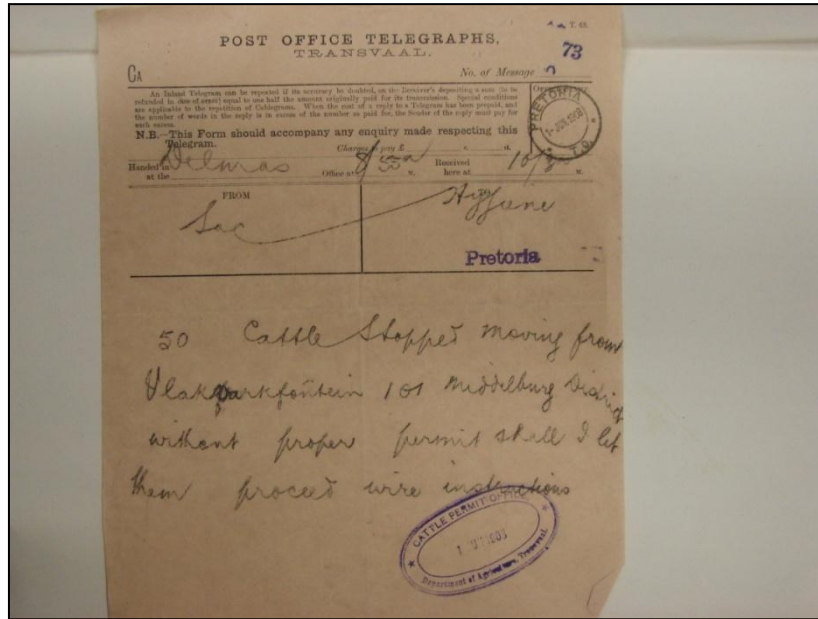 T. 68.
POST OFFICE TELEGRAPHS,
TRANSVAAL.
73
CA
No. of Message
An Inland Telegram can be repeated if its accuracy be doubted, on the Receiver's depositing a sum (to be
refunded in case of error) equal to one half the amount originally paid for its transmission. Special conditions
are applicable to the repetition of Cablegrams. When the cost of a reply to a Telegram has been prepaid, and
the number of words in the reply is in excess of the number so paid for, the Sender of the reply must pay for
such excess.
N.B.—This Form should accompany any enquiry made respecting this
Telegram.
Charges to pay £ s. d.
PRETORIA
Handed in at the Delmas Office at 8/55a M. Received here at M.
FROM
Sac
Pretoria
50 Cattle Stopped moving from
Vlakvarkfontein 101 Middelburg District
without proper permit shall I let
them proceed wire instructions
CATTLE PERMIT OFFICE
Department of Agriculture, Transvaal.